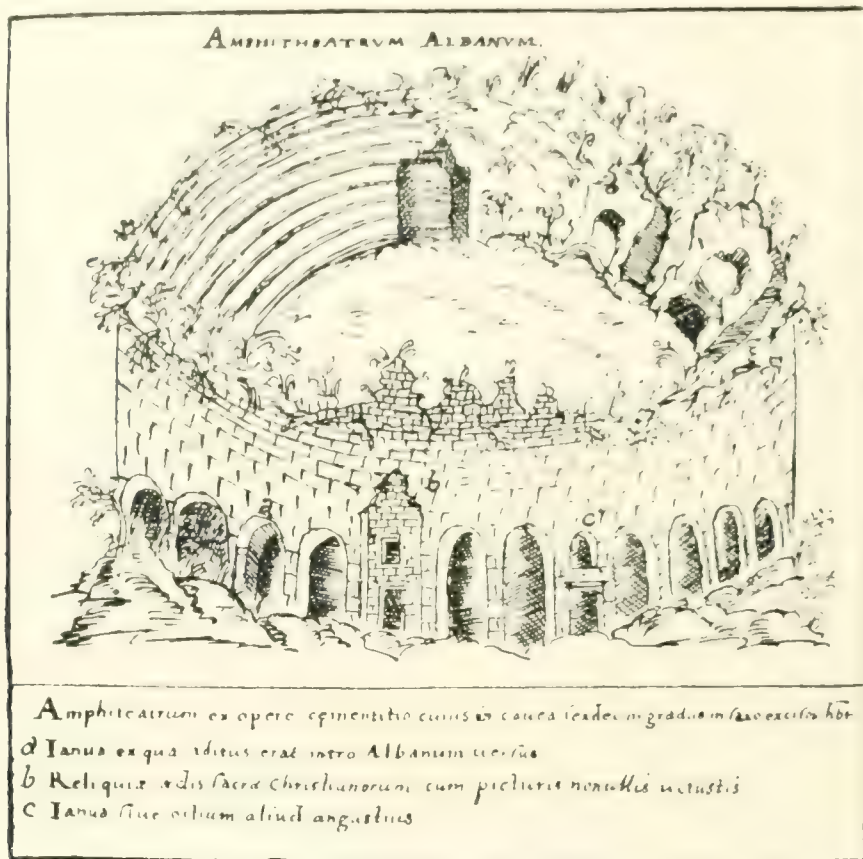 AMPHITHEATRVM ALBANVM.
b
c
Amphiteatrum ex opere cęmentitio cuius in cauea gradus in saxo excisos hbt
a Ianua ex qua aditus erat intro Albanum uersus
b Reliquiæ ædis sacræ Christianorum cum picturis nonullis uetustis
c Ianua siue ostium aliud angustius